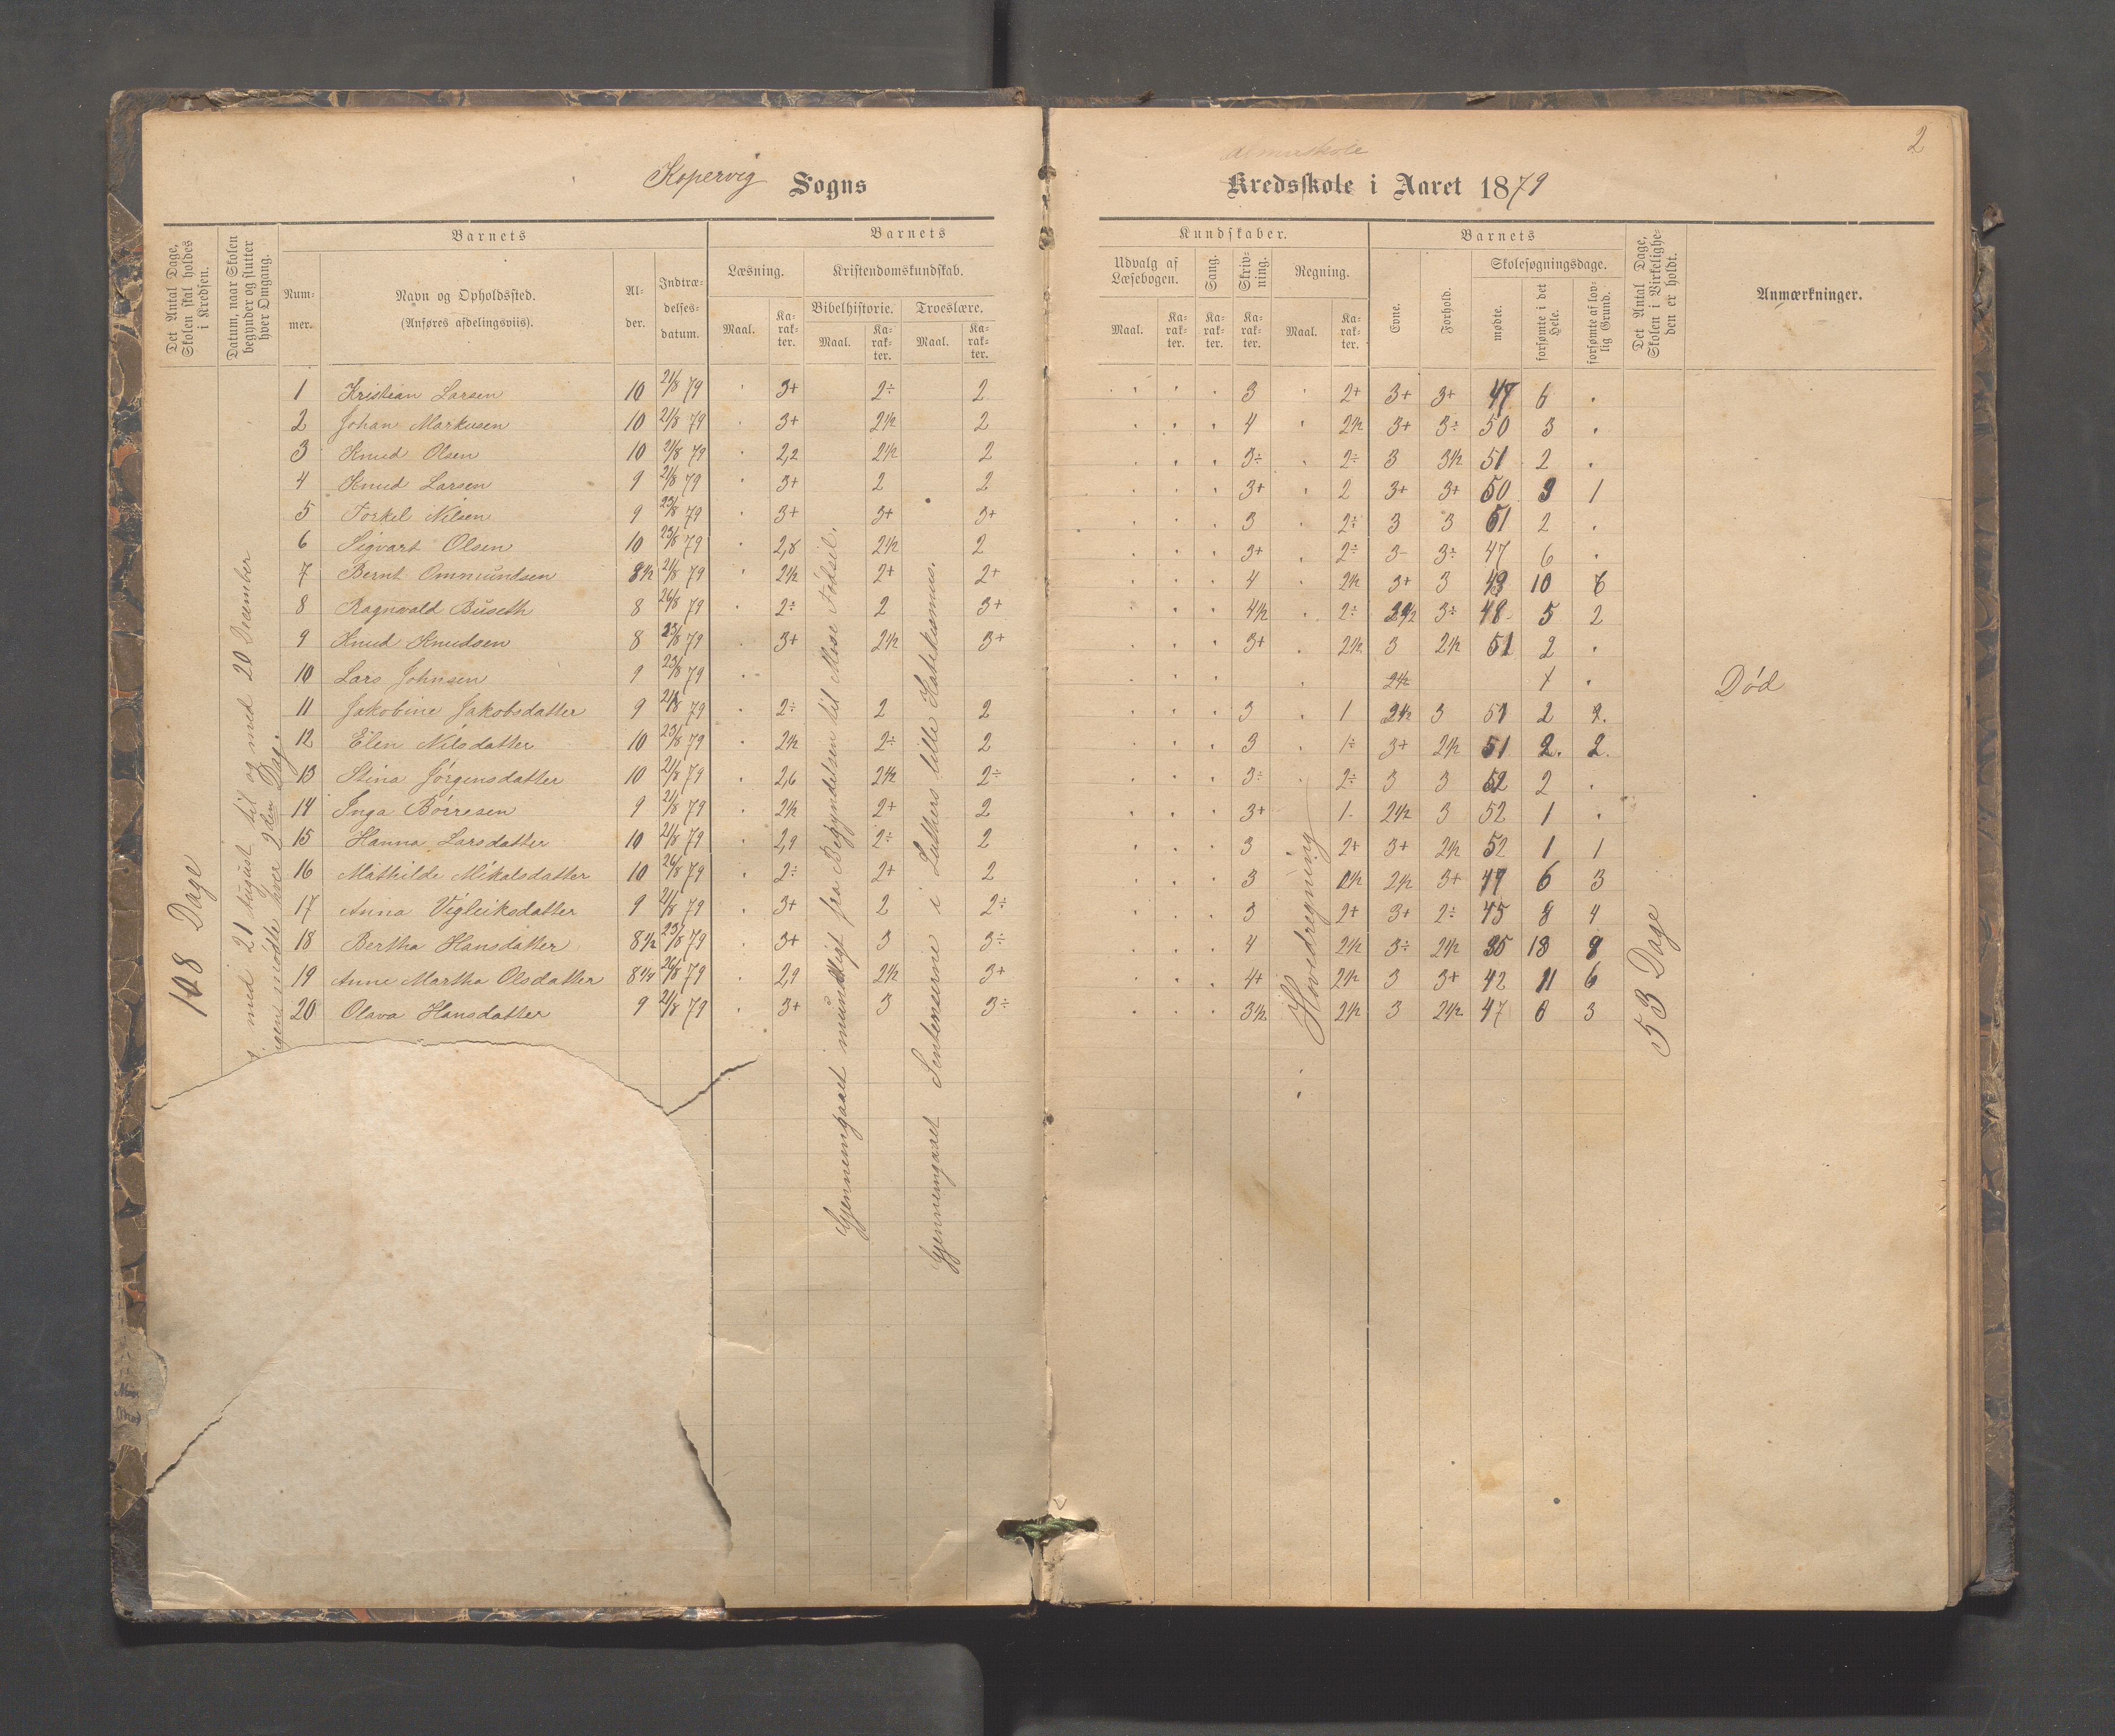 2
Kopervig Sogns
Almueskole
Kredsskole i Aaret 1879
Det Antal Dage, Skolen skal holdes i Kredsen.
Datum, naar Skolen begynder og slutter hver Omgang.
Barnets
Num-mer.
Navn og Opholdssted.
(Anføres afdelingsviis).
Al-der.
Indtræ-delses-datum.
Barnets
Læsning.
Maal.
Ka-rak-ter.
Kristendomskundskab.
Bibelhistorie.
Maal.
Ka-rak-ter.
Troeslære.
Maal.
Ka-rak-ter.
Kundskaber.
Udvalg af Læsebogen.
Maal.
Ka-rak-ter.
Sang.
Ka-rak-ter.
Skriv-ning.
Ka-rak-ter.
Regning.
Maal.
Ka-rak-ter.
Barnets
Evne.
Forhold.
Skolesøgningsdage.
mødte.
forsømte i det Hele.
forsømte af lov-lig Grund.
Det Antal Dage, Skolen i Virkelighe-den er holdt.
Anmærkninger.
1 Kristian Larsen 10 21/8 79 3+ 2÷ 2 3 2+ 3+ 3+ 47 6
2 Johan Markusen 10 21/8 79 3+ 2½ 2 4 2½ 3+ 3÷ 50 3
3 Knud Olsen 10 21/8 79 2,2 2½ 2 3÷ 2÷ 3 3½ 51 2
4 Knud Larsen 9 21/8 79 3+ 2 2 3+ 2 3+ 3+ 50 3 1
5 Torkel Nilsen 9 23/8 79 3+ 3+ 3+ 3 2÷ 3 3 51 2
6 Sigvart Olsen 10 23/8 79 2,8 2½ 2 3+ 2÷ 3- 3÷ 47 6
7 Bernt Ommundsen 8½ 21/8 79 2½ 2+ 2+ 4 2½ 3+ 3 43 10 6
8 Ragnvald Buseth 8 26/8 79 2÷ 2 3+ 4½ 2÷ 2½ 3÷ 48 5 2
9 Knud Knudsen 8 23/8 79 3+ 2½ 3+ 3+ 2½ 3 2½ 51 2
10 Lars Johnsen 9 23/8 79 2½ Død
11 Jakobine Jakobsdatter 9 21/8 79 2÷ 2 2 3 1 2½ 3 51 2 2.
12 Elen Nilsdatter 10 23/8 79 2½ 2÷ 2 3 1÷ 3+ 2½ 51 2. 2.
13 Stina Jørgensdatter 10 21/8 79 2,6 2½ 2÷ 3÷ 2÷ 3 3 52 2
14 Inga Børresen 9 21/8 79 2½ 2+ 2 3+ 1- 2½ 3 52 1
15 Hanna Larsdatter 10 21/8 79 2,9 2÷ 2 3 2+ 3+ 2½ 52 1 1
16 Mathilde Mikalsdatter 10 26/8 79 2÷ 2+ 2 3 2½ 2½ 3+ 47 6 3
17 Anna Vigleiksdatter 9 21/8 79 3+ 2 2÷ 3 2+ 3+ 2÷ 45 8 4
18 Bertha Hansdatter 8½ 23/8 79 3+ 3 3÷ 4 2½ 3÷ 2½ 35 18 9
19 Anne Martha Olsdatter 8¼ 26/8 79 2,9 2½ 3+ 4+ 2½ 3 3+ 42 11 6
20 Olava Hansdatter 9 21/8 79 3+ 3 3÷ 3½ 2½ 3 2½ 47 6 3
108 Dage
med 21 August til og med 20 December
mødte hver 2den Dag.
Gjennemgaaet mundtligt fra Begyndelsen til Mose Fødsel.
Gjennemgaaet Sentenserne i Luthers lille Katekismus.
Hovedregning
53 Dage